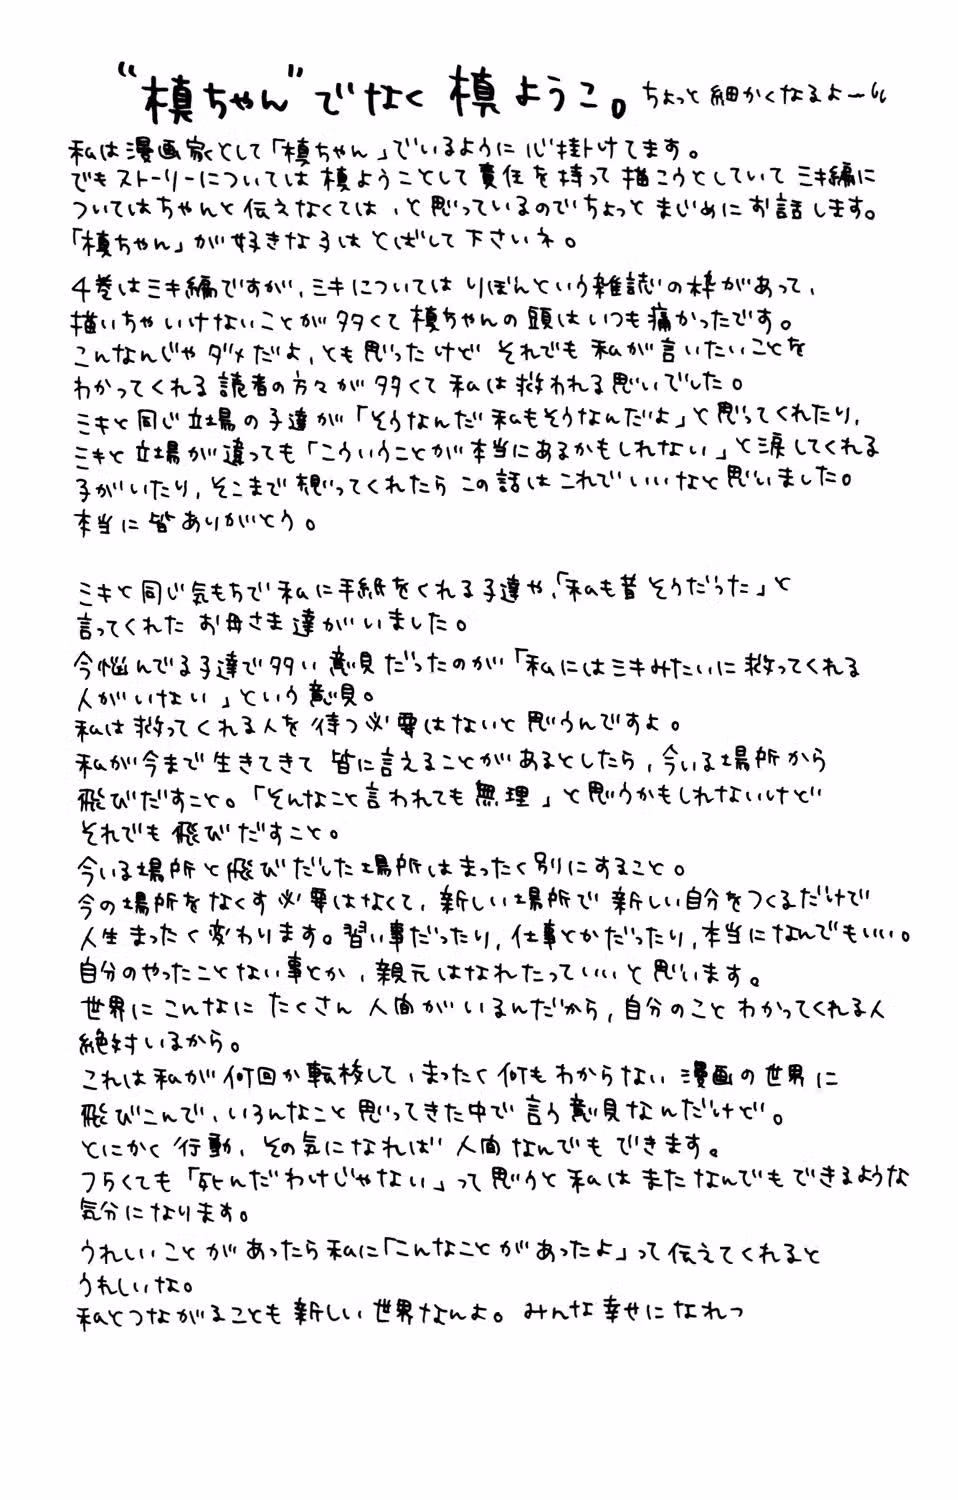 “槙ちゃん”でなく 槙ようこ。ちょっと細かくなるよー
私は漫画家として「槙ちゃん」でいるように心掛けてます。
でもストーリーについては 槙ようことして責任を持って描こうとしていて ミキ編に
ついてはちゃんと伝えなくては、と思っているのでちょっと まじめにお話します。
「槙ちゃん」が好きな子はとばして下さいネ。
4巻はミキ編ですが、ミキについては りぼんという雑誌の枠があって、
描いちゃいけないことが多くて 槙ちゃんの頭はいつも痛かったです。
こんなんじゃダメだよ、とも思ったけど それでも 私が言いたいことを
わかってくれる読者の方々が多くて 私は救われる思いでした。
ミキと同じ立場の子達が「そうなんだ 私もそうなんだよ」と思ってくれたり、
ミキと立場が違っても「こういうことが本当にあるかもしれない」と涙してくれる
子がいたり、そこまで想ってくれたら この話は これでいいなと思いました。
本当に皆ありがとう。
ミキと同じ気もちで私に手紙をくれる子達や、「私も昔そうだった」と
言ってくれた お母さま達がいました。
今悩んでる子達で多い意見だったのが「私にはミキみたいに救ってくれる
人がいない」という意見。
私は救ってくれる人を待つ必要はないと思うんですよ。
私が今まで生きてきて 皆に言えることがあるとしたら、今いる場所から
飛びだすこと。「そんなこと言われても無理」と思うかもしれないけど
それでも飛びだすこと。
今いる場所と飛びだした場所はまったく別にすること。
今の場所をなくす必要はなくて、新しい場所で新しい自分をつくるだけで
人生まったく変わります。習い事だったり、仕事とかだったり、本当になんでもいい。
自分のやったことない事とか、親元はなれたっていいと思います。
世界にこんなに たくさん 人間がいるんだから、自分のこと わかってくれる人
絶対いるから。
これは私が何回か転校して、まったく何もわからない 漫画の世界に
飛びこんで、いろんなこと思ってきた中で言う意見なんだけど。
とにかく行動、その気になれば 人間なんでもできます。
つらくても「死んだわけじゃない」って思うと私は またなんでもできるような
気分になります。
うれしいことがあったら私に「こんなことがあったよ」って伝えてくれると
うれしいな。
私とつながることも新しい世界なんよ。みんな幸せになれっ